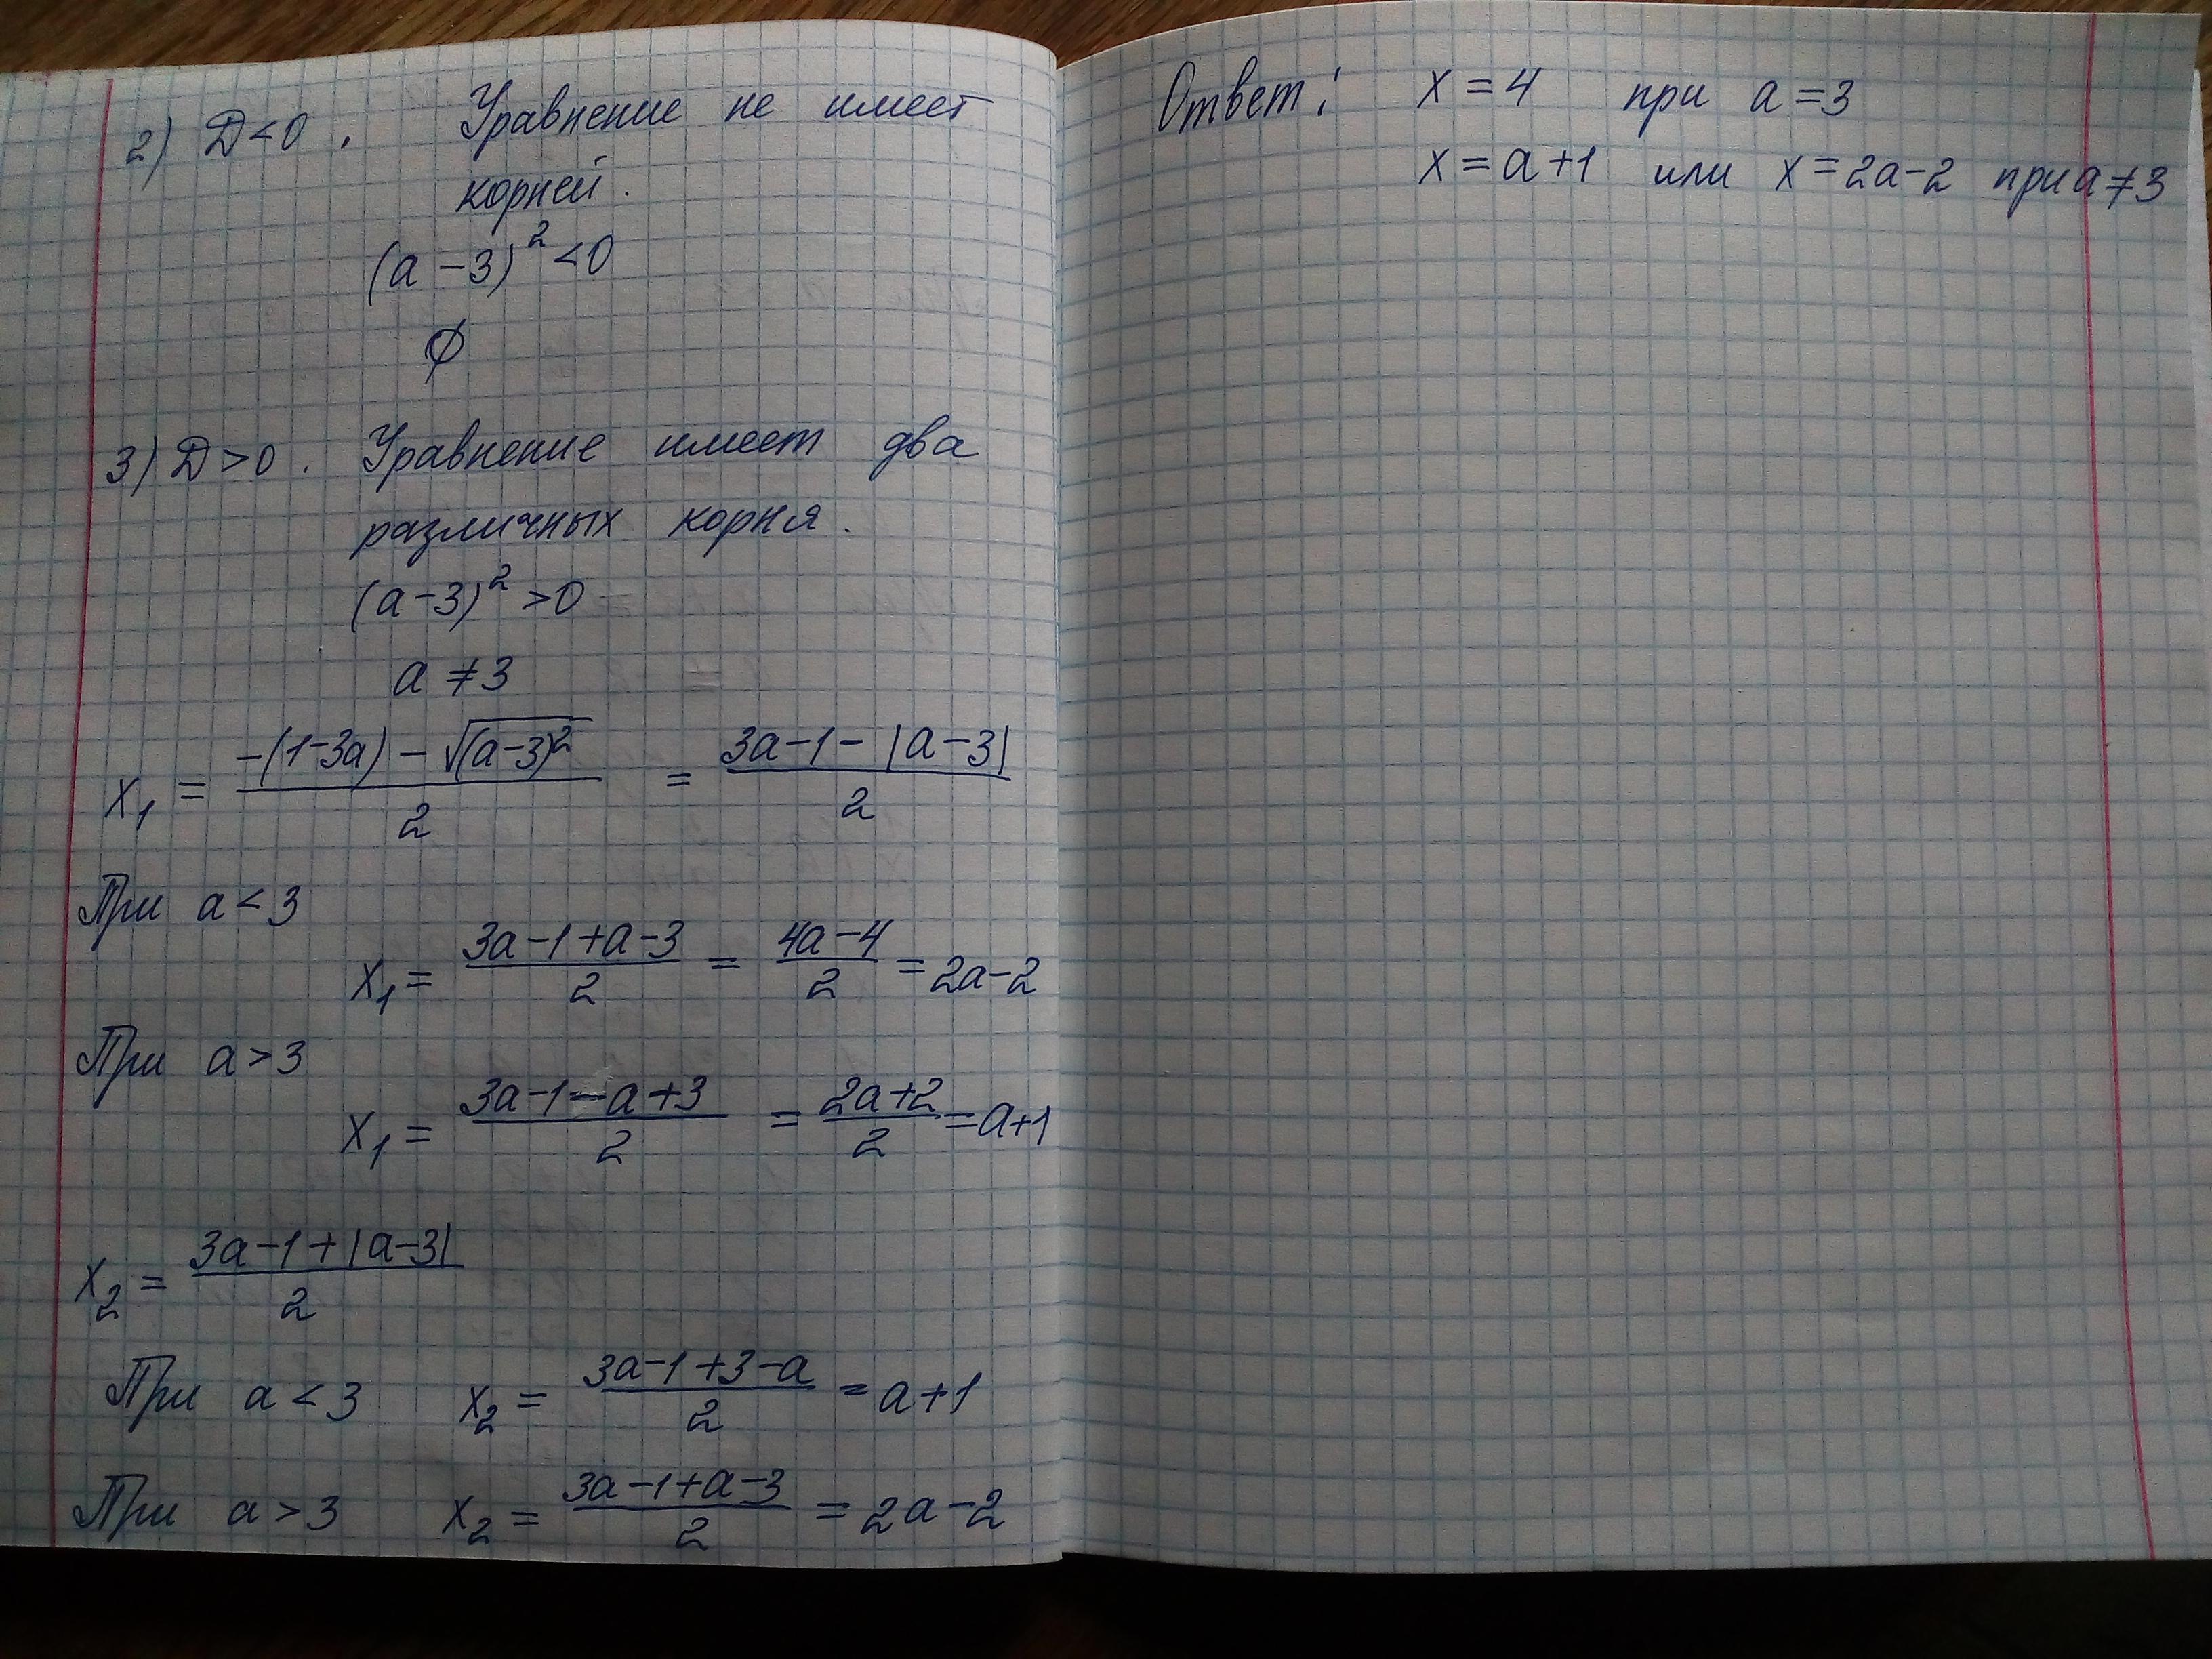 2) D<0. Уравнение не имеет
корней.
(a-3)² <0
∅
3) D>0. Уравнение имеет два
различных корня.
(a-3)² >0
a ≠ 3
x₁ = (-(1-3a) - √(a-3)²)/2 = (3a-1-|a-3|)/2
При a<3
x₁ = (3a-1+a-3)/2 = (4a-4)/2 = 2a-2
При a>3
x₁ = (3a-1-a+3)/2 = (2a+2)/2 = a+1
x₂ = (3a-1+|a-3|)/2
При a<3 x₂ = (3a-1+3-a)/2 = a+1
При a>3 x₂ = (3a-1+a-3)/2 = 2a-2
Ответ: x=4 при a=3
x=a+1 или x=2a-2 при a≠3